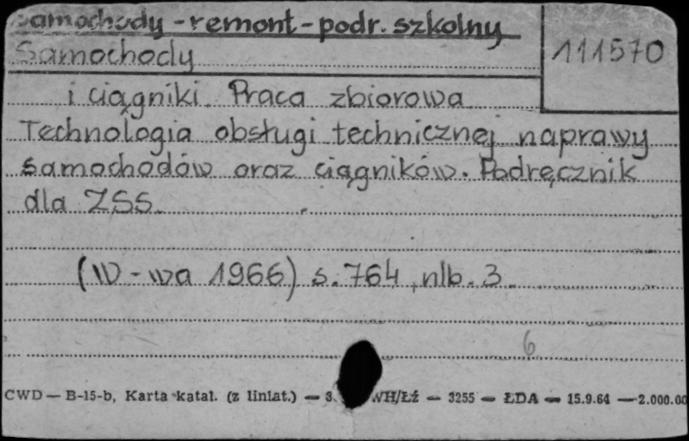 Samochody - remont - podr. szkolny
Samochody
111570
i ciągniki. Praca zbiorowa
Technologia obsługi technicznej naprawy
samochodów oraz ciągników. Podręcznik
dla ZSS.
(W-wa 1966) s. 764, nlb. 3.
6
CWD — B-15-b, Karta katal. (z liniat.) — 3. WH/Łź — 3255 — ŁDA — 15.9.64 — 2.000.00